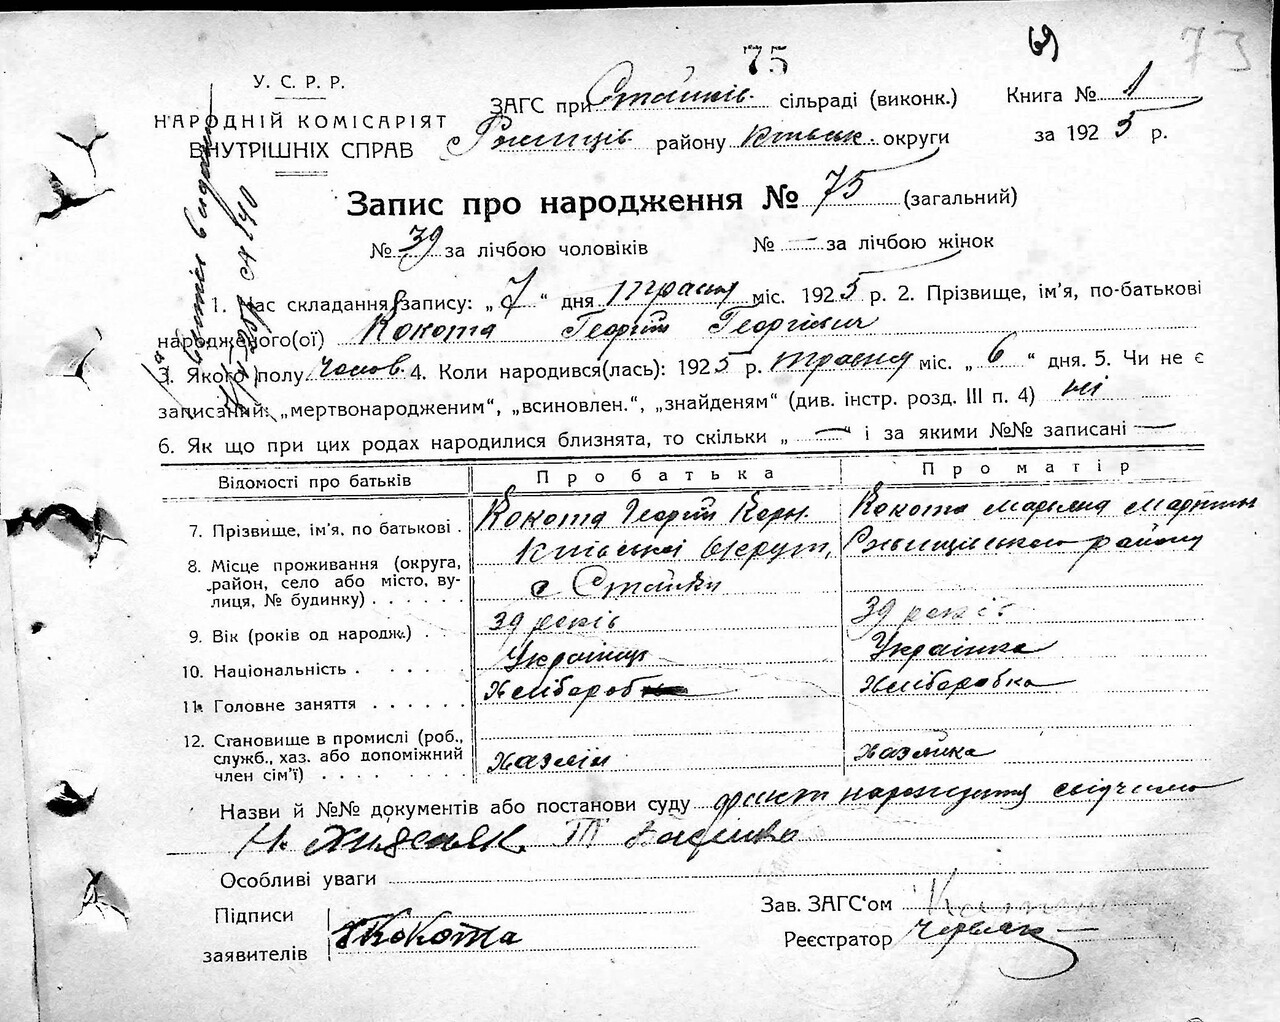 75
73
У. С. Р. Р.
НАРОДНІЙ КОМІСАРІЯТ
ВНУТРІШНІХ СПРАВ
ЗАГС при Стайків. сільраді (виконк.)
Ржищів району Київськ. округи
Книга № 1
за 1925 р.
Запис про народження № 75 (загальний)
№ 39 за лічбою чоловіків № — за лічбою жінок
1. Час складання запису: „ 7 “ дня травня міс. 1925 р. 2. Прізвище, ім'я, по-батькові
народженого(ої) Кокота Георгій Георгієвич
3. Якого полу чолов. 4. Коли народився(лась): 1925 р. травня міс. „ 6 “ дня. 5. Чи не є
записаний: „мертвонародженим“, „всиновлен.“, „знайденям“ (див. інстр. розд. III п. 4) ні
6. Як що при цих родах народилися близнята, то скільки „ — “ і за якими №№ записані —
Відомості про батьків Про батька Про матір
7. Прізвище, ім'я, по батькові . Кокота Георгій Корн. Кокота Мар'яна Мартин
8. Місце проживання (округа, район, село або місто, вулиця, № будинку) Київської округи, Ржищівського району
с Стайки
9. Вік (років од народж.) . . 39 років 39 років
10. Національність . . . . . Українець Українка
11. Головне заняття . . . . . . Хлібороб Хліборобка
12. Становище в промислі (роб., служб., хаз. або допоміжний член сім'ї) . . . . . . . Хазяїн Хазяйка
Назви й №№ документів або постанови суду факт народження свідчимо
Н. Т
Особливі уваги
Підписи
заявителів
Кокота
Зав. ЗАГС'ом
Реєстратор Червяк